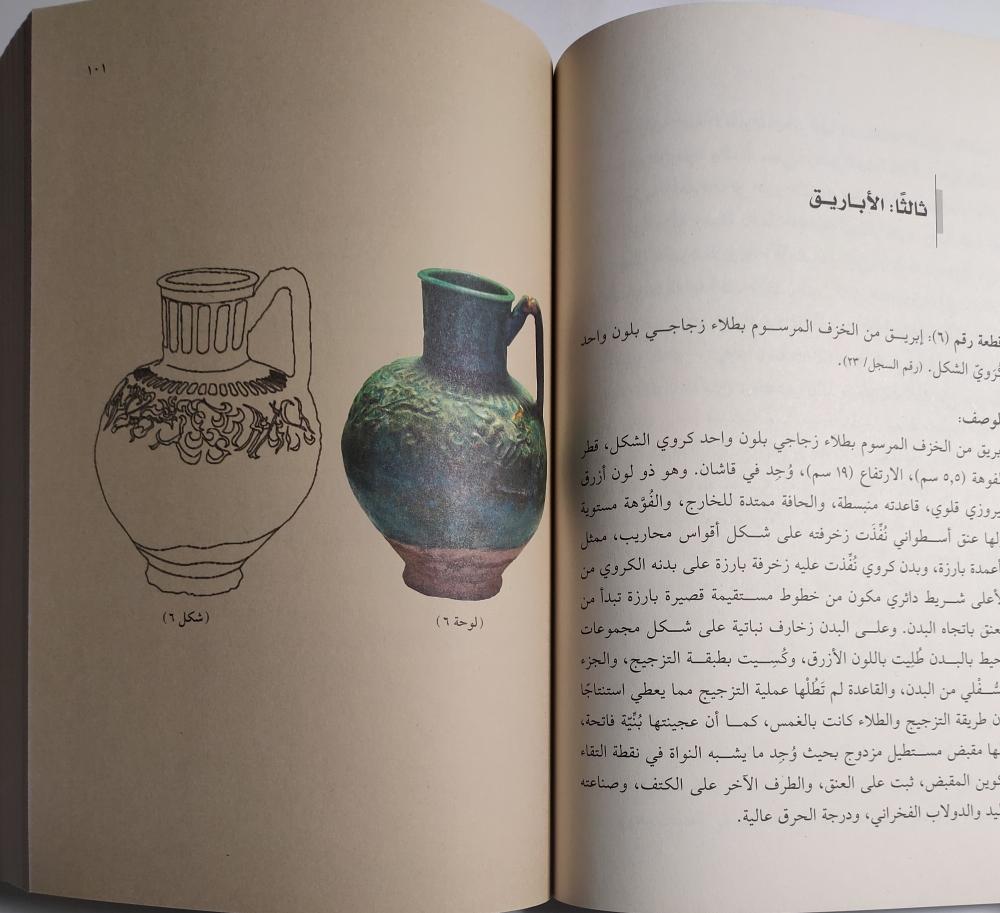 ثالثًا: الأباريق
قطعة رقم (٦): إبريق من الخزف المرسوم بطلاء زجاجي بلون واحد
كُرَويّ الشكل. (رقم السجل/ ٢٣).
لوصف:
بريق من الخزف المرسوم بطلاء زجاجي بلون واحد كروي الشكل، قطر
لفوهة (٥,٥ سم)، الارتفاع (١٩ سم)، وُجِد في قاشان. وهو ذو لون أزرق
يروزي قلوي، قاعدته منبسطة، والحافة ممتدة للخارج، والفُوَّهة مستوية
لها عنق أسطواني نُفِّذَت زخرفته على شكل أقواس محاريب، ممثل
أعمدة بارزة، وبدن كروي نُفِّذت عليه زخرفة بارزة على بدنه الكروي من
لأعلى شريط دائري مكون من خطوط مستقيمة قصيرة بارزة تبدأ من
عنق باتجاه البدن. وعلى البدن زخارف نباتية على شكل مجموعات
حيط بالبدن طُلِيت باللون الأزرق، وكُسِيت بطبقة التزجيج، والجزء
سُّفْلي من البدن، والقاعدة لم تَطُلْها عملية التزجيج مما يعطي استنتاجًا
ن طريقة التزجيج والطلاء كانت بالغمس، كما أن عجينتها بُنِّيّة فاتحة،
ها مقبض مستطيل مزدوج بحيث وُجِد ما يشبه النواة في نقطة التقاء
كوين المقبض، ثبت على العنق، والطرف الآخر على الكتف، وصناعته
ليد والدولاب الفخراني، ودرجة الحرق عالية.
١٠١
(لوحة ٦)
(شكل ٦)